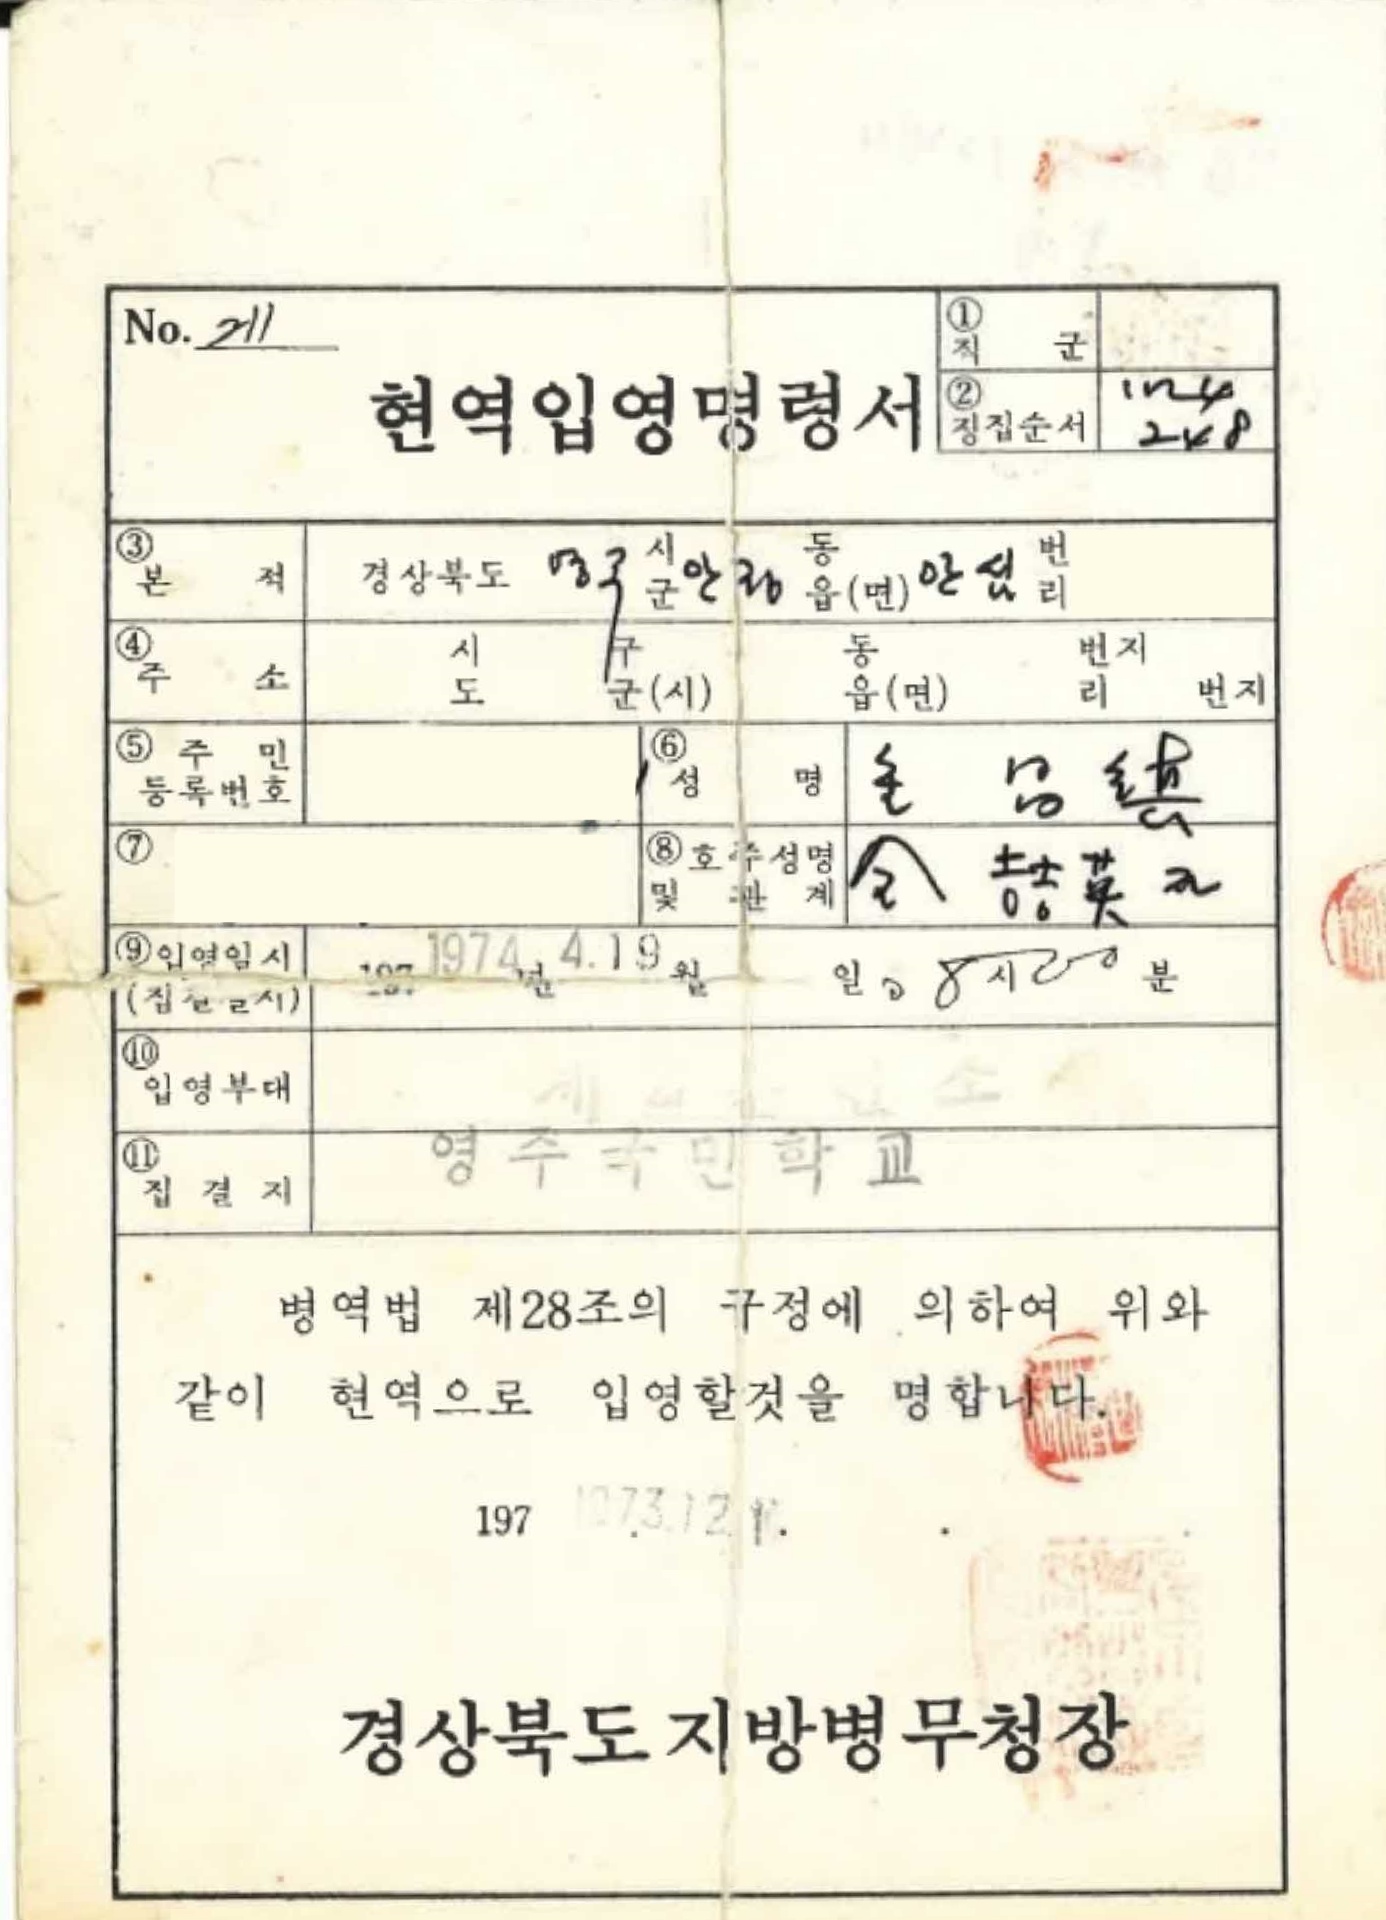 No. 211
① 직 군
현역입영명령서
② 징집순서 248
③ 본 적 경상북도 영주 시 군 안정 동 읍(면) 안심 번 리
④ 주 소 시 도 구 군(시) 동 읍(면) 번지 리 번지
⑤ 주 민 등록번호
⑥ 성 명
⑦
⑧ 호주성명 및 관 계
⑨ 입영일시 (집결일시) 197 1974 년 4.19 월 일 8시 20분
⑩ 입영부대
⑪ 집 결 지 영주국민학교
병역법 제28조의 구정에 의하여 위와
같이 현역으로 입영할것을 명합니다.
197 1973.12.1.
경상북도지방병무청장